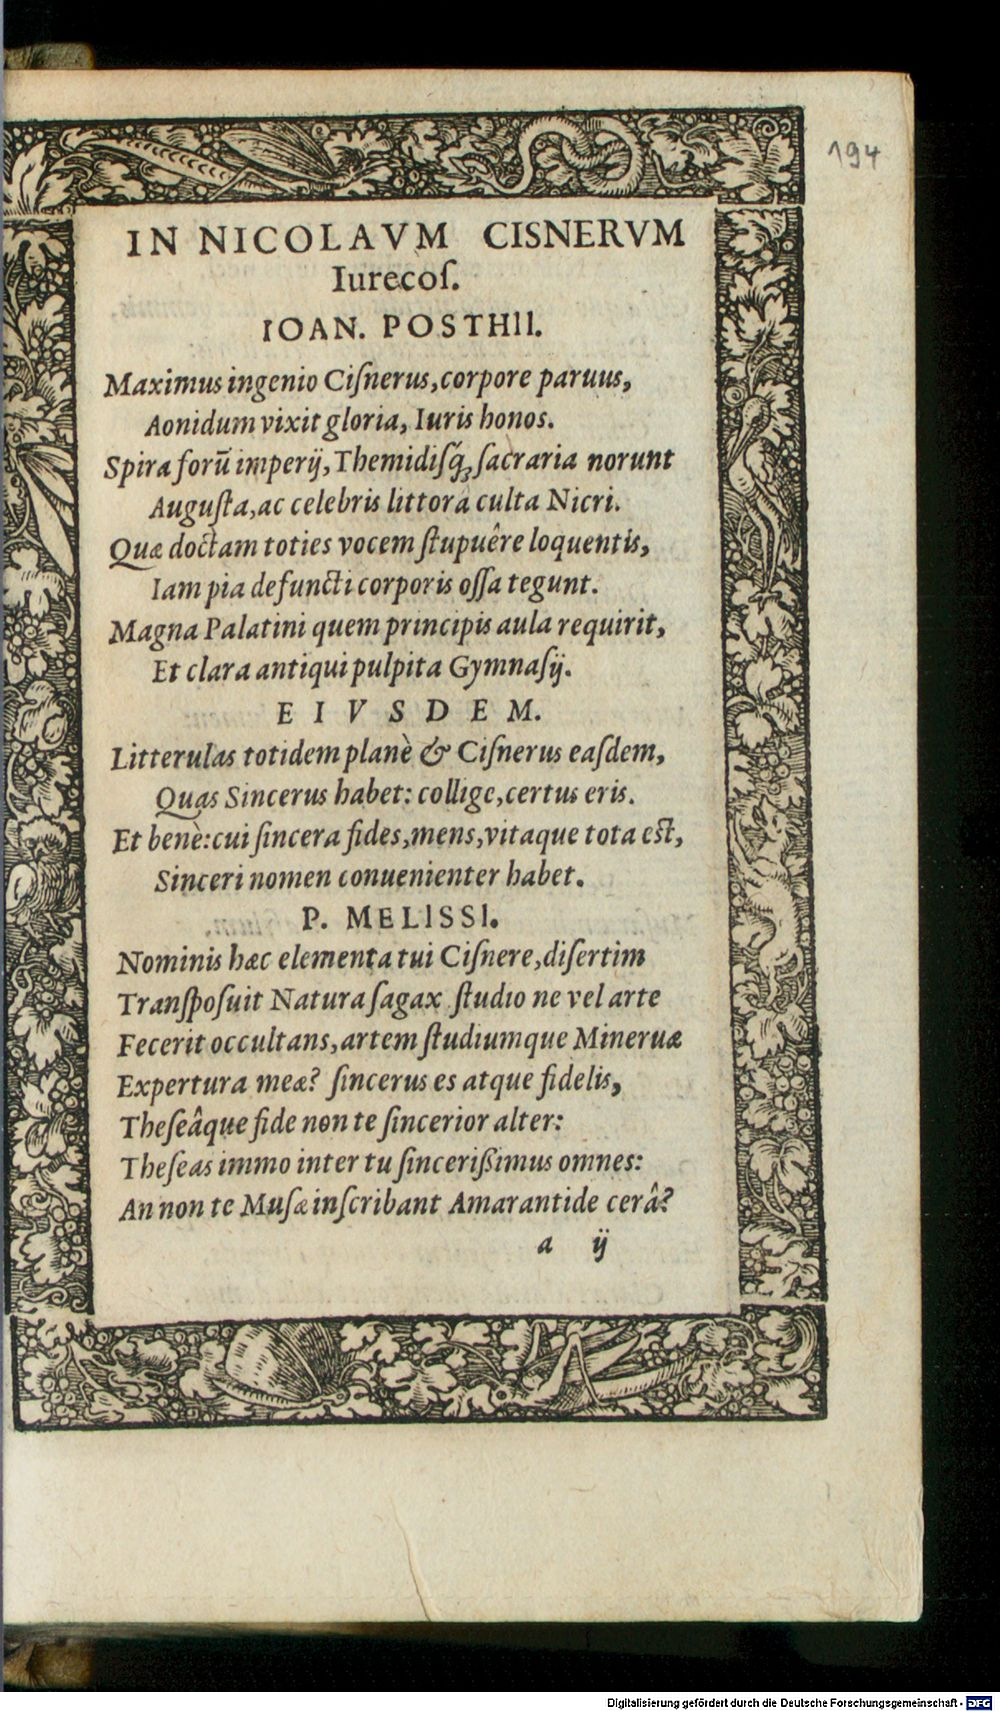 194
IN NICOLAVM CISNERVM
Iurecoſ.
IOAN. POSTHII.
Maximus ingenio Ciſnerus, corpore paruus,
Aonidum vixit gloria, Iuris honos.
Spira forũ imperij, Themidiſq́; ſacraria norunt
Auguſta, ac celebris littora culta Nicri.
Quæ doctam toties vocem ſtupuêre loquentis,
Iam pia defuncti corporis oſſa tegunt.
Magna Palatini quem principis aula requirit,
Et clara antiqui pulpita Gymnaſij.
EIVSDEM.
Litterulas totidem planè & Ciſnerus eaſdem,
Quas Sincerus habet: collige, certus eris.
Et benè: cui ſincera fides, mens, vitaque tota est,
Sinceri nomen conuenienter habet.
P. MELISSI.
Nominis hæc elementa tui Ciſnere, diſertim
Tranſpoſuit Natura ſagax ſtudio ne vel arte
Fecerit occultans, artem ſtudiumque Mineruæ
Expertura meæ? ſincerus es atque fidelis,
Theſeâque fide non te ſincerior alter:
Theſeas immo inter tu ſinceriſsimus omnes:
An non te Muſæ inſcribant Amarantide cerâ?
a ij
Digitalisierung gefördert durch die Deutsche Forschungsgemeinschaft - DFG